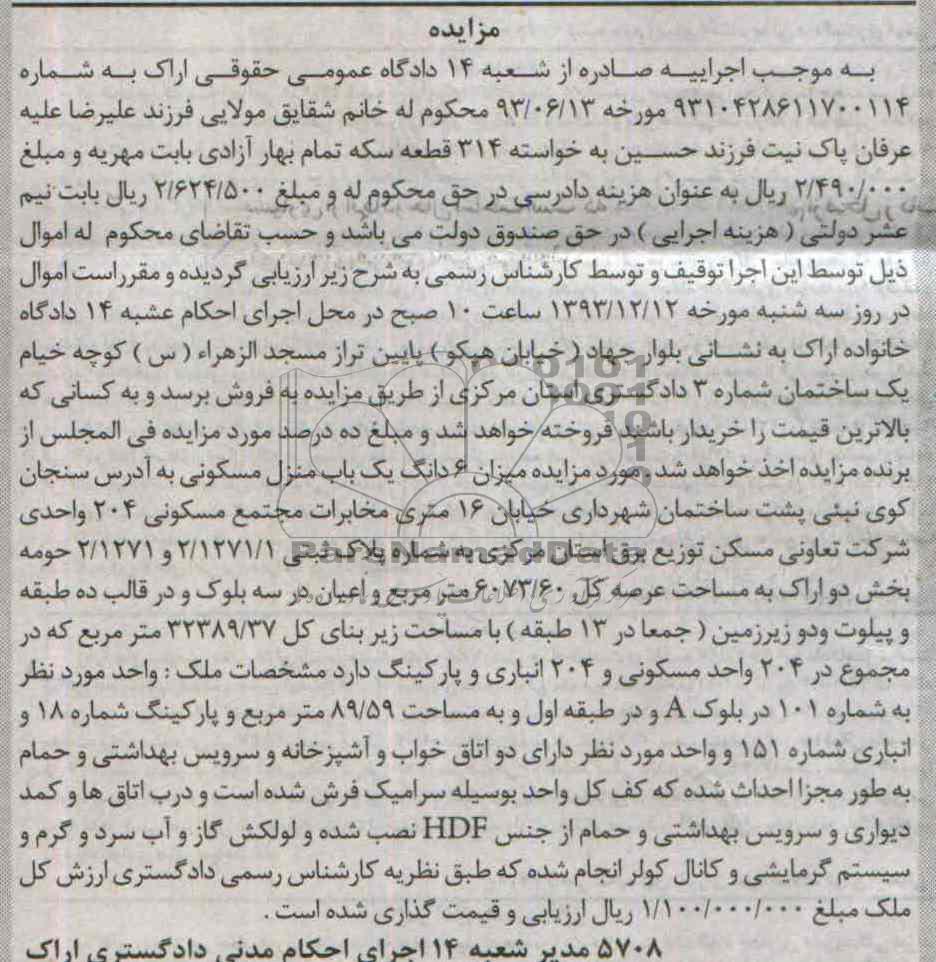 مزایده
به موجب اجراییه صادره از شعبه ۱۴ دادگاه عمومی حقوقی اراک به شماره
۹۳۱۰۴۲۸۶۱۱۷۰۰۱۱۴ مورخه ۹۳/۰۶/۱۳ محکوم له خانم شقایق مولایی فرزند علیرضا علیه
عرفان پاک نیت فرزند حسین به خواسته ۳۱۴ قطعه سکه تمام بهار آزادی بابت مهریه و مبلغ
۲/۴۹۰/۰۰۰ ریال به عنوان هزینه دادرسی در حق محکوم له و مبلغ ۲/۶۲۴/۵۰۰ ریال بابت نیم
عشر دولتی ( هزینه اجرایی ) در حق صندوق دولت می باشد و حسب تقاضای محکوم له اموال
ذیل توسط این اجرا توقیف و توسط کارشناس رسمی به شرح زیر ارزیابی گردیده و مقرراست اموال
در روز سه شنبه مورخه ۱۳۹۳/۱۲/۱۲ ساعت ۱۰ صبح در محل اجرای احکام عشبه ۱۴ دادگاه
خانواده اراک به نشانی بلوار جهاد ( خیابان هپکو ) پایین تراز مسجد الزهراء ( س ) کوچه خیام
یک ساختمان شماره ۳ دادگستری استان مرکزی از طریق مزایده به فروش برسد و به کسانی که
بالاترین قیمت را خریدار باشند فروخته خواهد شد و مبلغ ده درصد مورد مزایده فی المجلس از
برنده مزایده اخذ خواهد شد . مورد مزایده میزان ۶ دانگ یک باب منزل مسکونی به آدرس سنجان
کوی نبئی پشت ساختمان شهرداری خیابان ۱۶ متری مخابرات مجتمع مسکونی ۲۰۴ واحدی
شرکت تعاونی مسکن توزیع برق استان مرکزی به شماره پلاک ثبتی ۲/۱۲۷۱/۱ و ۲/۱۲۷۱ حومه
بخش دو اراک به مساحت عرصه کل ۶۰۷۳/۶۰ متر مربع و اعیان در سه بلوک و در قالب ده طبقه
و پیلوت ودو زیرزمین ( جمعا در ۱۳ طبقه ) با مساحت زیر بنای کل ۳۲۳۸۹/۳۷ متر مربع که در
مجموع در ۲۰۴ واحد مسکونی و ۲۰۴ انباری و پارکینگ دارد مشخصات ملک : واحد مورد نظر
به شماره ۱۰۱ در بلوک A و در طبقه اول و به مساحت ۸۹/۵۹ متر مربع و پارکینگ شماره ۱۸ و
انباری شماره ۱۵۱ و واحد مورد نظر دارای دو اتاق خواب و آشپزخانه و سرویس بهداشتی و حمام
به طور مجزا احداث شده که کف کل واحد بوسیله سرامیک فرش شده است و درب اتاق ها و کمد
دیواری و سرویس بهداشتی و حمام از جنس HDF نصب شده و لولکش گاز و آب سرد و گرم و
سیستم گرمایشی و کانال کولر انجام شده که طبق نظریه کارشناس رسمی دادگستری ارزش کل
ملک مبلغ ۱/۱۰۰/۰۰۰/۰۰۰ ریال ارزیابی و قیمت گذاری شده است .
۵۷۰۸ مدیر شعبه ۱۴ اجرای احکام مدنی دادگستری اراک
ParsNamadData